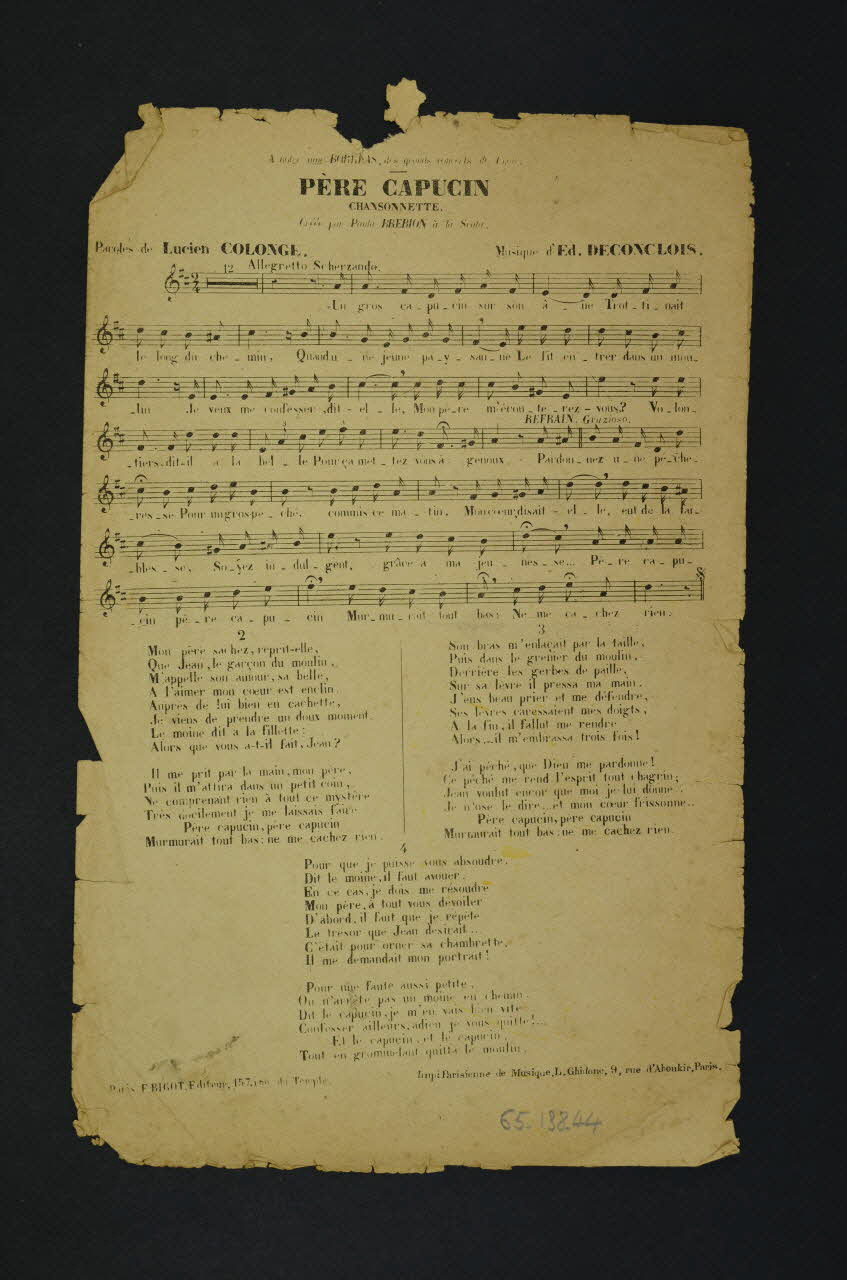 A notre ami des grands concerts de
PÈRE CAPUCIN
CHANSONNETTE.
Créée par Paula BREBION à la Scala.
Paroles de Lucien COLONGE.
Musique d'Ed. DECONCLOIS.
12 Allegretto Scherzando.
Un gros ca_pu_cin sur son â_ne Trot_ti_nait
le long du che_min, Quand u_ne jeune pa_y_san_ne Le fit en_trer dans un mou_
_lin Je veux me confesser, dit_el_le, Mon pè_re m'écou_te_rez_vous? Vo_lon_
REFRAIN. Grazioso.
_tiers, dit-il à la bel_le Pour ça met_tez vous à genoux. Pardon_nez u_ne pé_che_
_res_se Pour un gros pé_ché, commis ce ma_tin, Mon cœur, disait_el_le, eut de la fai_
_bles_se, So_yez in_dul_gent, grâce à ma jeu_nes_se... Pè_re ca_pu_
_cin pè_re ca_pu_cin Mur_mu_rait tout bas: Ne me ca_chez rien.
2
Mon père sachez, reprit-elle,
Que Jean, le garçon du moulin,
M'appelle son amour, sa belle,
A l'aimer mon cœur est enclin
Auprès de lui bien en cachette,
Je viens de prendre un doux moment.
Le moine dit à la fillette:
Alors que vous a-t-il fait, Jean?
Il me prit par la main, mon père,
Puis il m'attira dans un petit coin,
Ne comprenant rien à tout ce mystère
Très docilement je me laissais faire
Père capucin, père capucin
Murmurait tout bas: ne me cachez rien.
3
Son bras m'enlaçait par la taille,
Puis dans le grenier du moulin,
Derrière les gerbes de paille,
Sur sa lèvre il pressa ma main.
J'eus beau prier et me défendre,
Ses lèvres caressaient mes doigts,
A la fin, il fallut me rendre
Alors... il m'embrassa trois fois!
J'ai péché, que Dieu me pardonne!
Ce péché me rend l'esprit tout chagrin;
Jean voulut encor que moi je lui donne...
Je n'ose le dire... et mon cœur frissonne...
Père capucin, père capucin
Murmurait tout bas: ne me cachez rien.
4
Pour que je puisse vous absoudre,
Dit le moine, il faut avouer.
En ce cas, je dois me résoudre
Mon père, à tout vous dévoiler
D'abord, il faut que je répète
Le trésor que Jean désirait...
C'était pour orner sa chambrette,
Il me demandait mon portrait!
Pour une faute aussi petite,
On n'arrête pas un moine en chemin
Dit le capucin, je m'en vais bien vite
Confesser ailleurs, adieu je vous quitte!...
Et le capucin, et le capucin,
Tout en grommelant quitta le moulin.
Paris, F. BIGOT, Editeur, 157, rue du Temple.
Imp: Parisienne de Musique, L. Ghidone, 9, rue d'Aboukir, Paris.
65.138.44